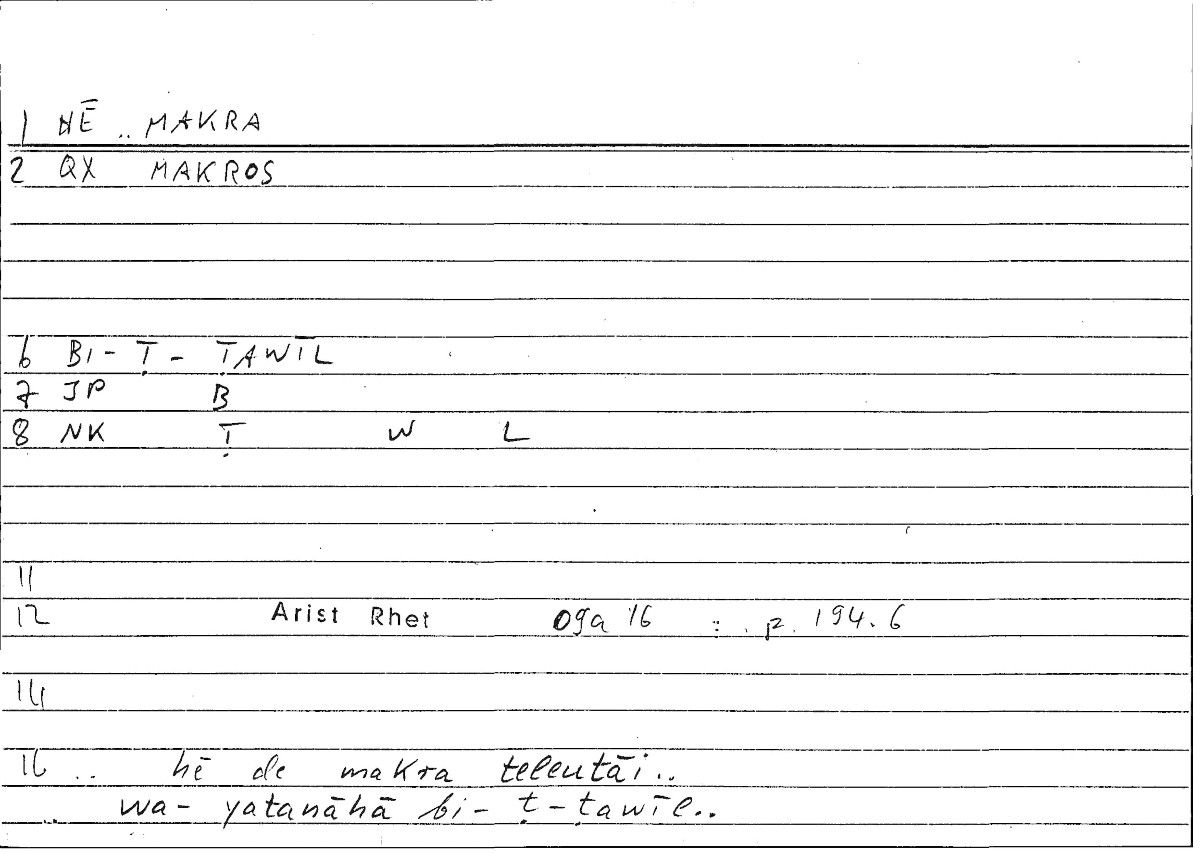 1 HĒ .. MAKRA
2 QX MAKROS
6 BI - Ṭ - ṬAWĪL
7 JP B
8 NK Ṭ W L
11
12 Arist Rhet 09a 16 : . p. 194.6
14
16 .. hē de makra teleutāi..
.. wa- yatanāhā bi- ṭ-ṭawīl..